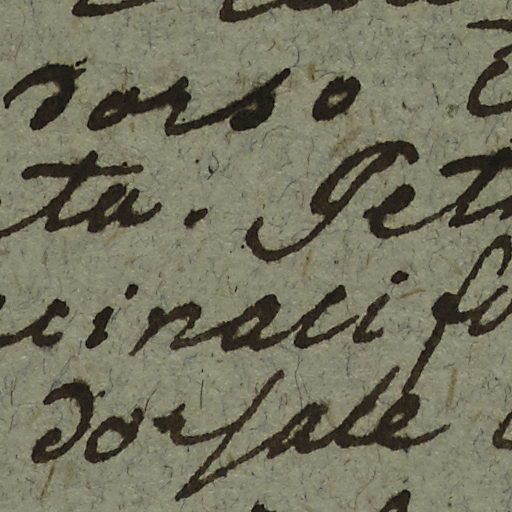 dorso
ta. Pet
cinacifo
dorſale